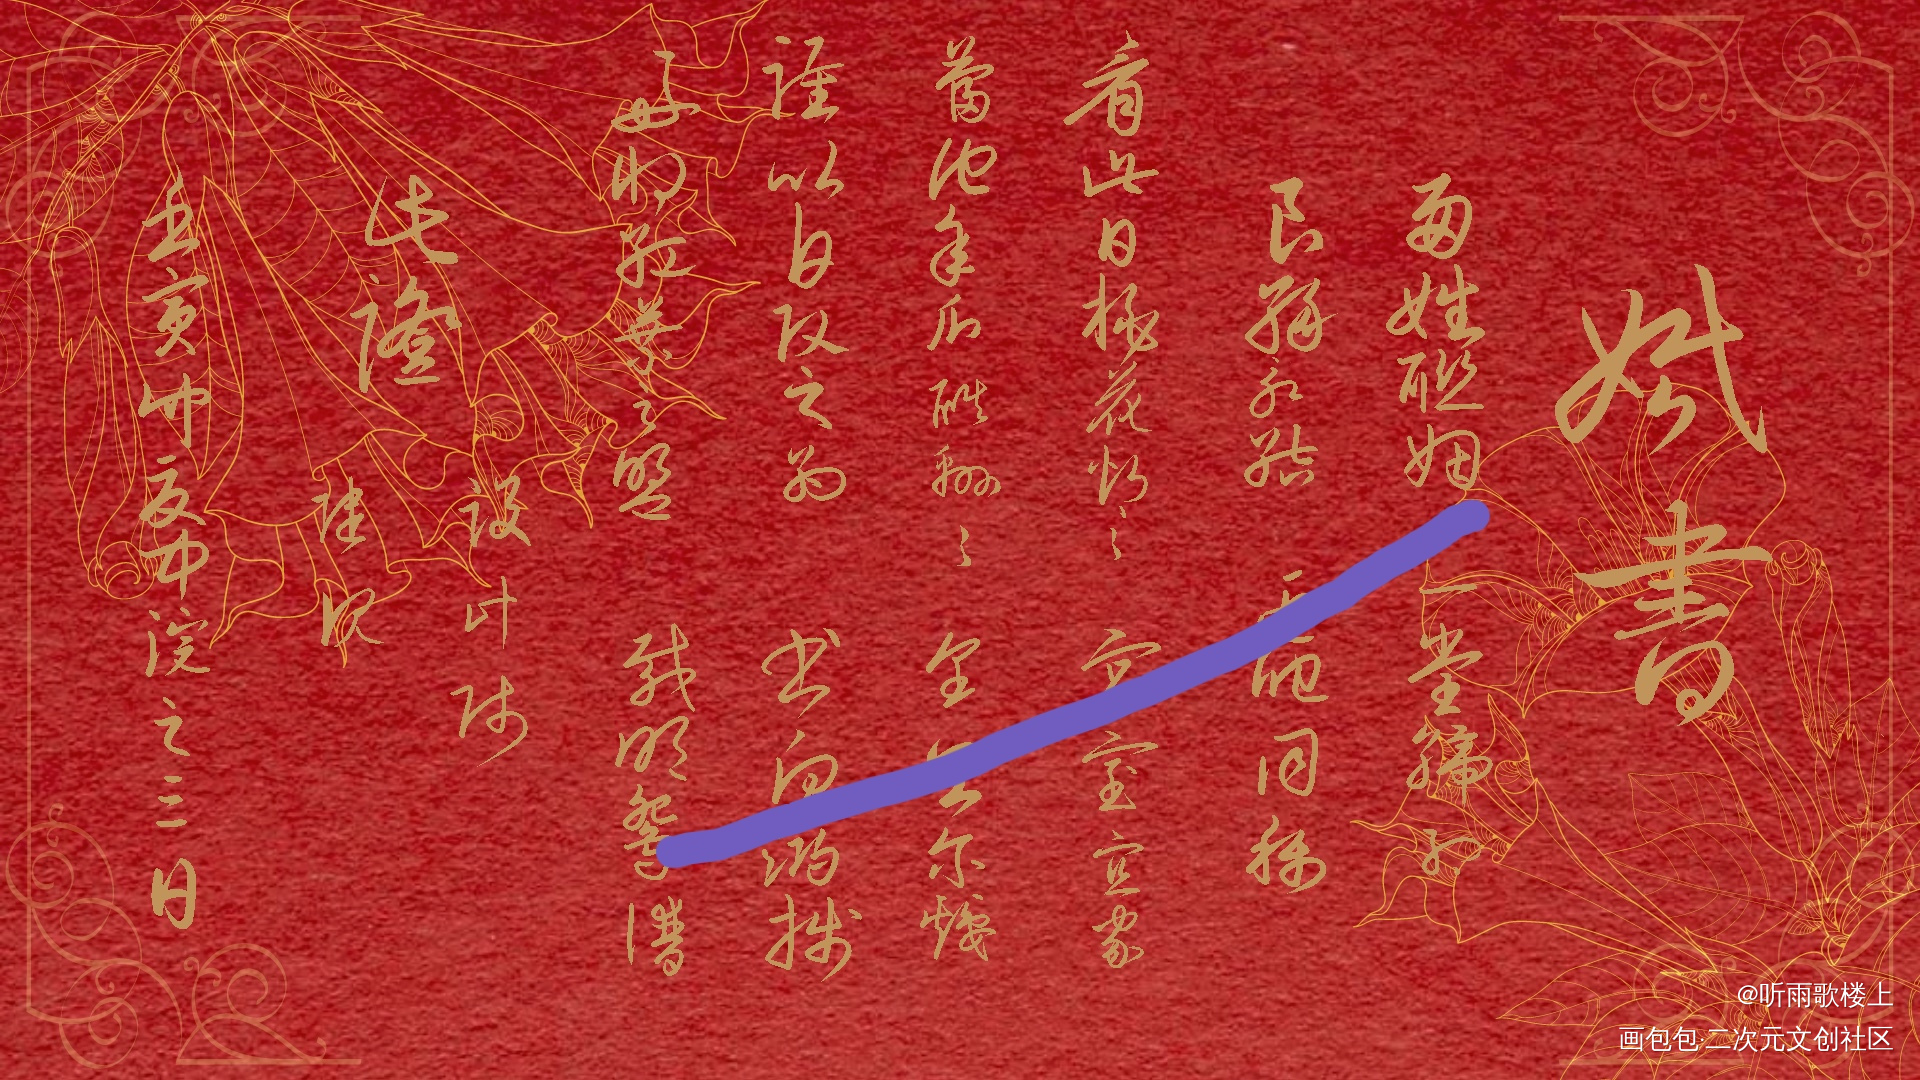 婚書
兩姓聯姻 一堂締約
良緣永結 匹配同稱
看此日桃花灼灼 宜室宜家
蔔他年瓜瓞綿綿 尔昌尔熾
謹以白頭之約 书向鴻箋
好將紅葉之盟 載明鴛譜
設計師
此證
中浣之三日
@听雨歌楼上
画包包·二次元文创社区